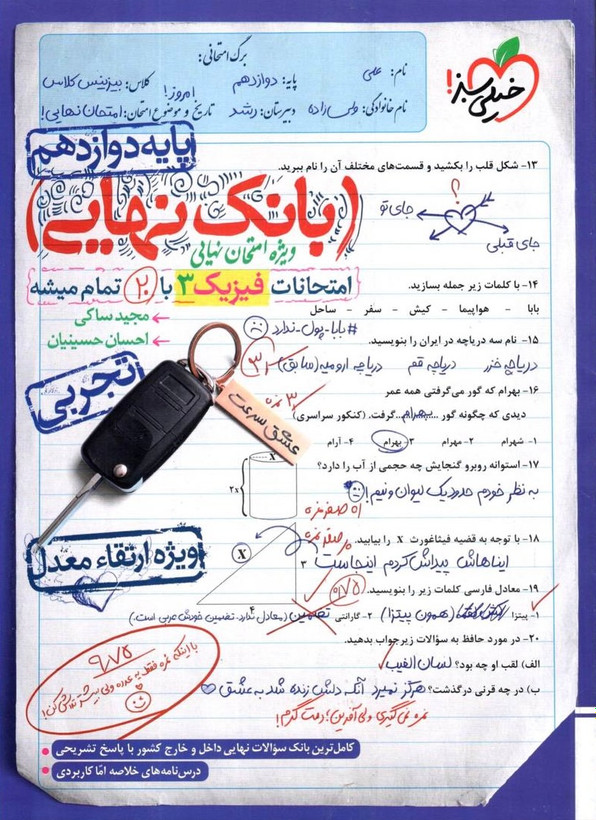 خیلی سبز!
برگ امتحانی:
نام: علی
پایه: دوازدهم
کلاس: بیزینس کلاس
نام خانوادگی: ولی زاده
دبیرستان: رشد
تاریخ و موضوع امتحان: امروز! امتحان نهایی!
پایه دوازدهم
۱۳- شکل قلب را بکشید و قسمت‌های مختلف آن را نام ببرید.
؟
جای تو
جای قبلی
(بانک نهایی)
ویژه امتحان نهایی
امتحانات فیزیک ۳ با ۲۰ تمام میشه
مجید ساکی
احسان حسینیان
تجربی
۱۴- با کلمات زیر جمله بسازید.
بابا - هواپیما - کیش - سفر - ساحل
#بابا-پول-ندارد
۱۵- نام سه دریاچه در ایران را بنویسید.
دریاچه خزر دریاچه قم دریاچه ارومیه (سابق)
۱۶- بهرام که گور می‌گرفتی همه عمر
دیدی که چگونه گور ....بهرام....گرفت. (کنکور سراسری)
۳ نمره
۱- شهرام ۲- مهرام ۳ بهرام ۴- آرام
عشق سرعت
۱۷- استوانه روبرو گنجایش چه حجمی از آب را دارد؟
به نظر خودم حدود یک لیوان و نیم!
x
۲x
۱۸- با توجه به قضیه فیثاغورث X را بیابید.
ایناهاش پیداش کردم اینجاست
X
۳
۴
ویژه ارتقاء معدل
۱۹- معادل فارسی کلمات زیر را بنویسید.
۰/۷۵
۱- پیتزا (همون پیتزا) ۲- گارانتی تضمین (معادل ندارد. تضمین خودش عربی است.)
۲۰- در مورد حافظ به سؤالات زیر جواب بدهید.
الف) لقب او چه بود؟ لسان الغیب
ب) در چه قرنی درگذشت؟ هرگز نمیرد آنکه دلش زنده شد به عشق
نمره نمی‌گیری ولی آفرین! دمت گرم!
۹/۷۵
کامل‌ترین بانک سؤالات نهایی داخل و خارج کشور با پاسخ تشریحی
درس‌نامه‌های خلاصه امّا کاربردی